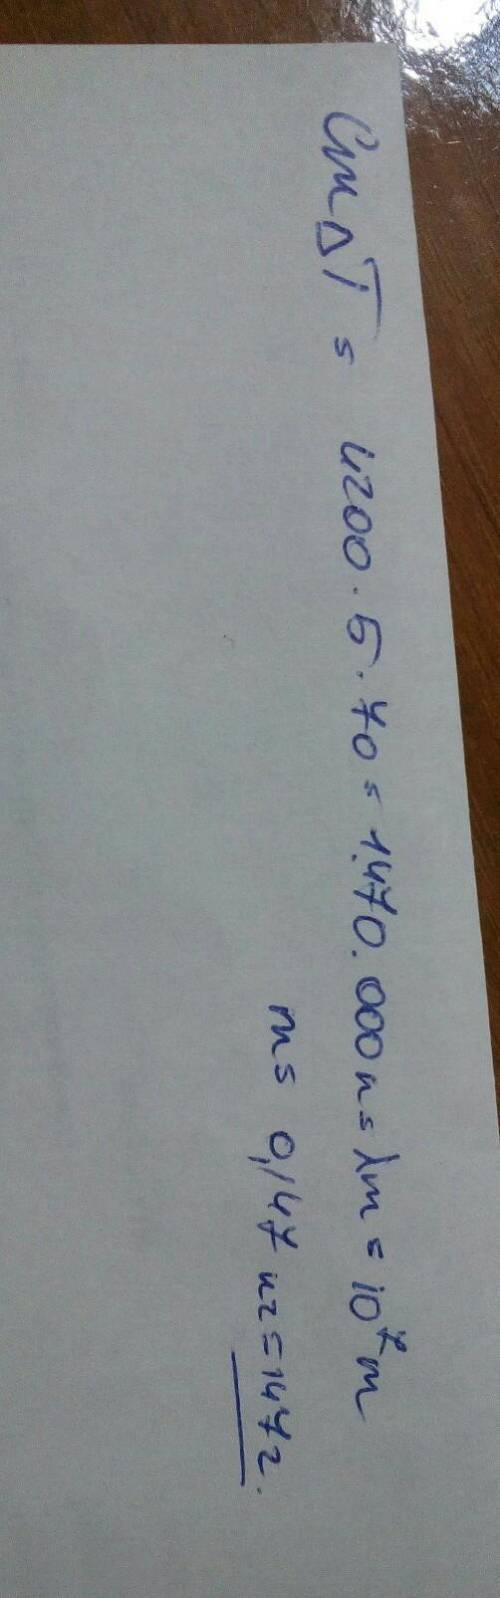 CmΔT = 4200 · 5 · 70 = 1.470.000 = λm = 10⁷m
m = 0,147 кг = 147 г.